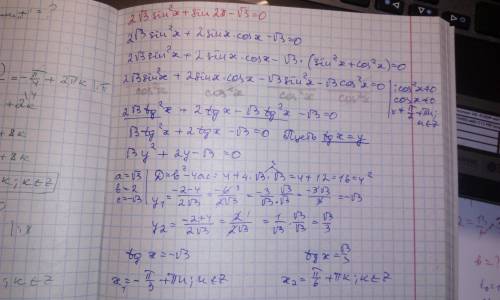 2√3 sin²x + sin2x - √3 = 0
2√3 sin²x + 2sinx·cosx - √3 = 0
2√3 sin²x + 2sinx·cosx - √3·(sin²x + cos²x) = 0
2√3 sin²x + 2sinx·cosx - √3 sin²x - √3 cos²x = 0 | : cos²x ≠ 0
cos²x cos²x cos²x cos²x cosx ≠ 0
2√3 tg²x + 2tgx - √3 tg²x - √3 = 0 x ≠ π/2 + πn; n∈Z
√3 tg²x + 2tgx - √3 = 0 Пусть tgx = y
√3y² + 2y - √3 = 0
a=√3 D = b² - 4ac = 4 + 4·√3·√3 = 4 + 12 = 16 = 4²
b=2 y₁ = (-2-4)/(2√3) = -6/(2√3) = -3·√3/(√3·√3) = -3√3/3 = -√3
c=-√3
y₂ = (-2+4)/(2√3) = 2/(2√3) = 1/√3 · √3/√3 = √3/3
tg x = -√3 tg x = √3/3
x₁ = -π/3 + πn; n∈Z x₂ = π/6 + πк; к∈Z
= -π/4 + 2πк
+2к
к, к∈Z